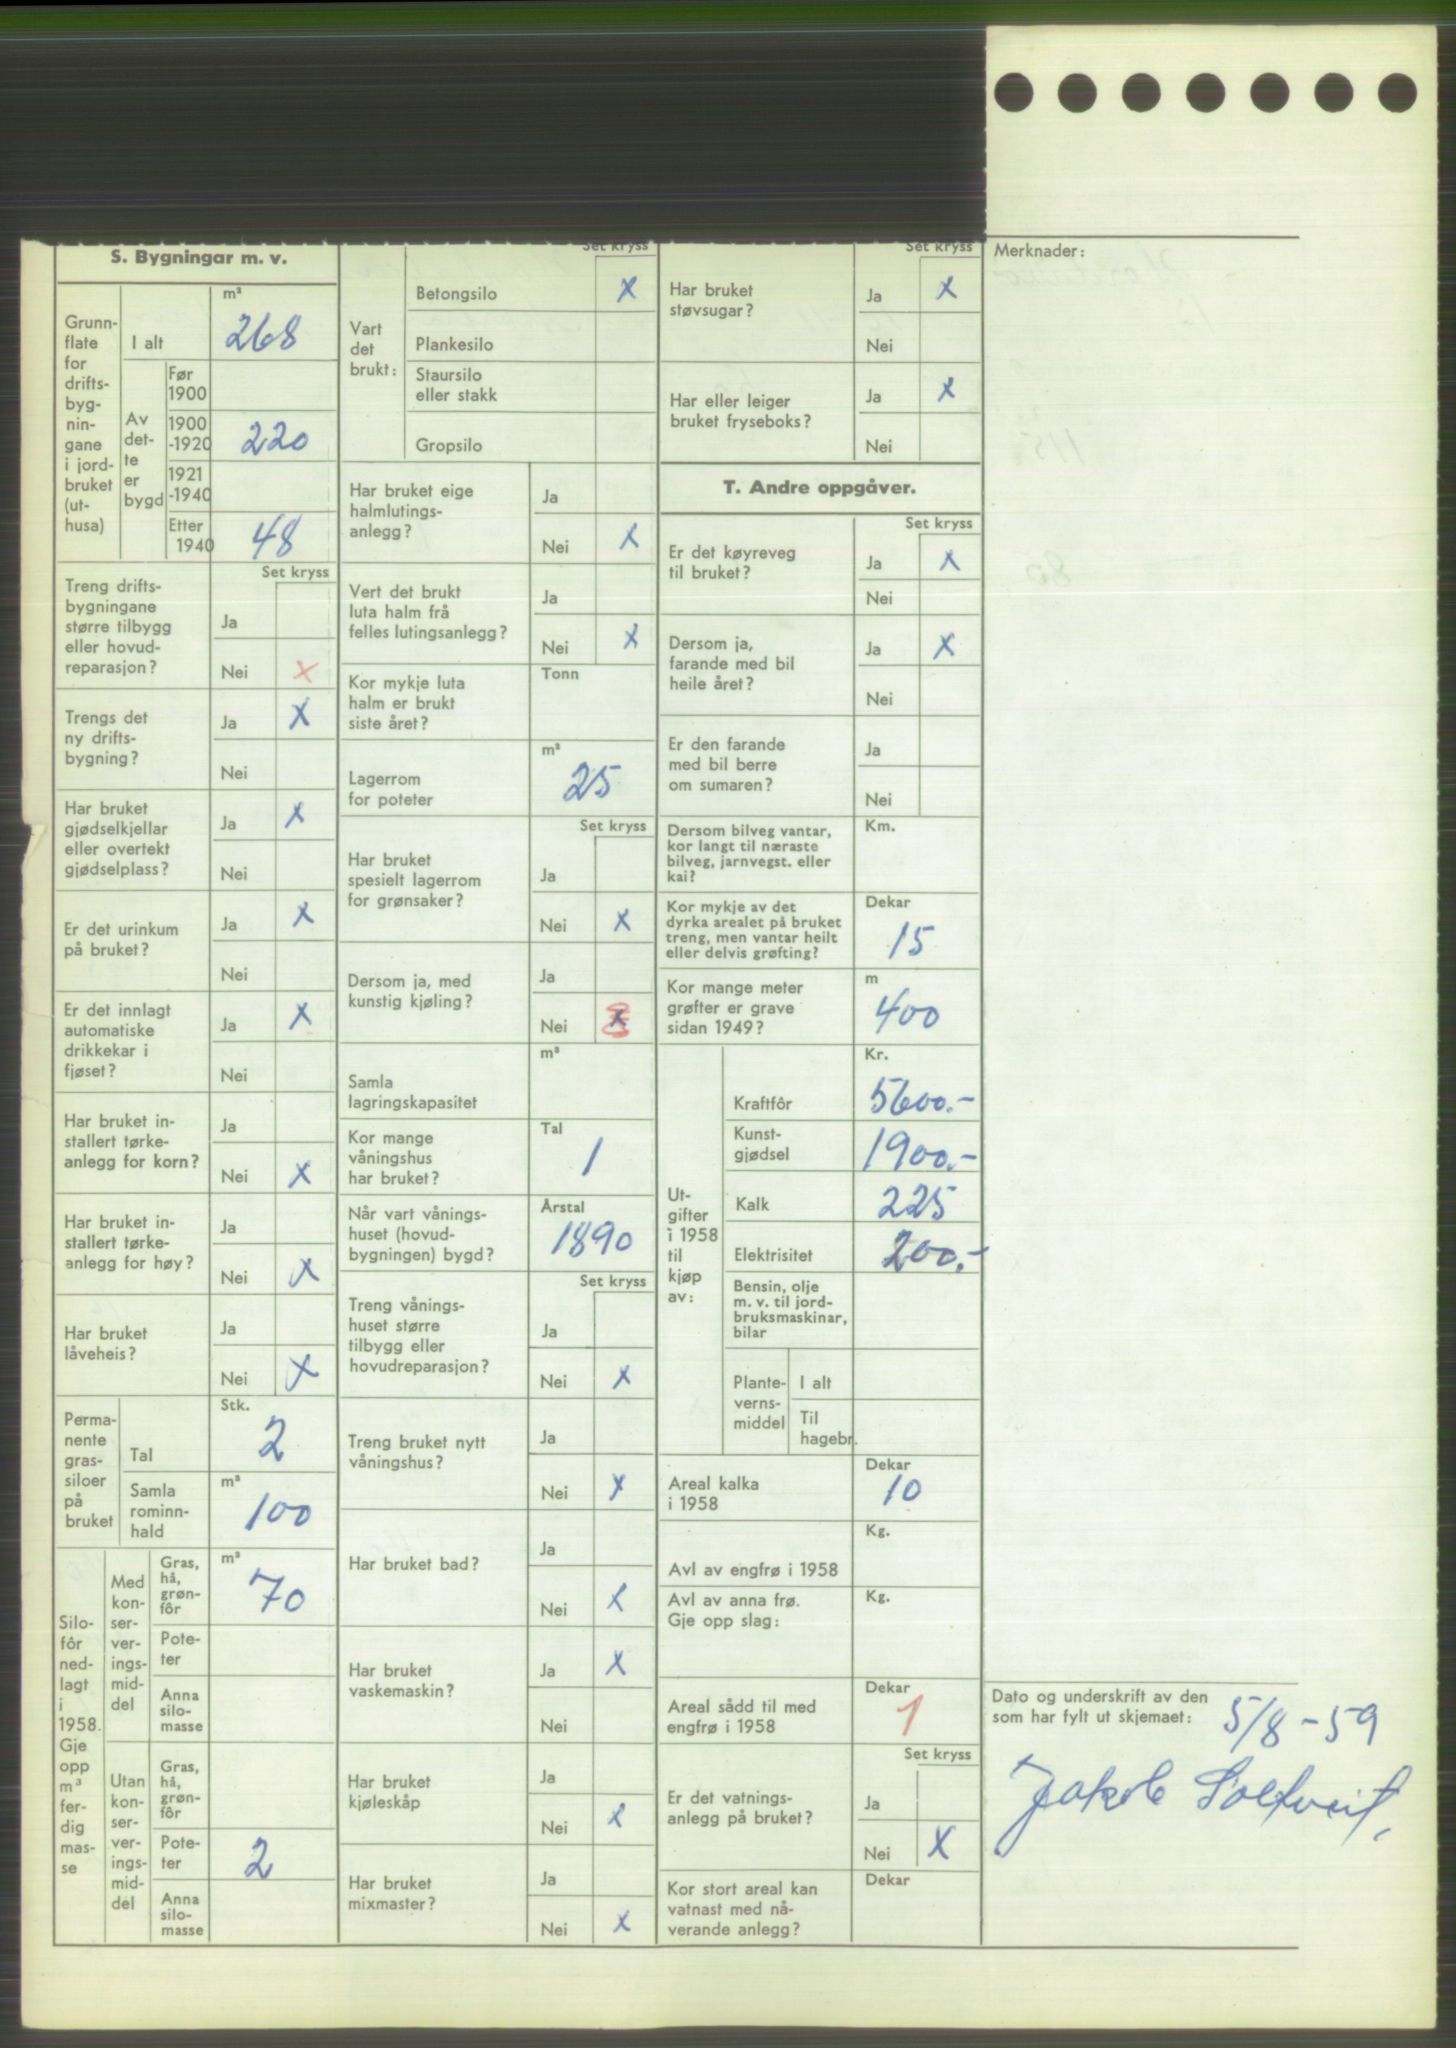 S. Bygningar m. v.
Grunn-
flate
for
drifts-
byg-
nin-
gane
i jord-
bruket
(ut-
husa)
I alt
m²
268
Av
det-
te
er
bygd
Før
1900
1900
-1920
220
1921
-1940
Etter
1940
48
Set kryss
Treng drifts-
bygningane
større tilbygg
eller hovud-
reparasjon?
Ja
Nei X
Trengs det
ny drifts-
bygning?
Ja X
Nei
Har bruket
gjødselkjellar
eller overtekt
gjødselplass?
Ja X
Nei
Er det urinkum
på bruket?
Ja X
Nei
Er det innlagt
automatiske
drikkekar i
fjøset?
Ja X
Nei
Har bruket in-
stallert tørke-
anlegg for korn?
Ja
Nei X
Har bruket in-
stallert tørke-
anlegg for høy?
Ja
Nei X
Har bruket
låveheis?
Ja
Nei X
Perma-
nente
gras-
siloer
på
bruket
Tal
Stk.
2
Samla
rominn-
hald
m³
100
Silo-
fôr
ned-
lagt
i
1958.
Gje
opp
m³
fer-
dig
mas-
se
Med
kon-
ser-
ver-
ings-
mid-
del
Gras,
hå,
grøn-
fôr
m³
70
Pote-
ter
Anna
silo-
masse
Utan
kon-
ser-
ver-
ings-
mid-
del
Gras,
hå,
grøn-
fôr
Pote-
ter
2
Anna
silo-
masse
Set kryss
Vart
det
brukt:
Betongsilo X
Plankesilo
Staursilo
eller stakk
Gropsilo
Har bruket eige
halmlutings-
anlegg?
Ja
Nei X
Vert det brukt
luta halm frå
felles lutingsanlegg?
Ja
Nei X
Kor mykje luta
halm er brukt
siste året?
Tonn
Lagerrom
for poteter
m³
25
Set kryss
Har bruket
spesielt lagerrom
for grønsaker?
Ja
Nei X
Dersom ja, med
kunstig kjøling?
Ja
Nei X
Samla
lagringskapasitet
m³
Kor mange
våningshus
har bruket?
Tal
1
Når vart vånings-
huset (hovud-
bygningen) bygd?
Årstal
1890
Set kryss
Treng vånings-
huset større
tilbygg eller
hovudreparasjon?
Ja
Nei X
Treng bruket nytt
våningshus?
Ja
Nei X
Har bruket bad?
Ja
Nei X
Har bruket
vaskemaskin?
Ja X
Nei
Har bruket
kjøleskåp
Ja
Nei X
Har bruket
mixmaster?
Ja
Nei X
Set kryss
Har bruket
støvsugar?
Ja X
Nei
Har eller leiger
bruket fryseboks?
Ja X
Nei
T. Andre oppgåver.
Set kryss
Er det køyreveg
til bruket?
Ja X
Nei
Dersom ja,
farande med bil
heile året?
Ja X
Nei
Er den farande
med bil berre
om sumaren?
Ja
Nei
Dersom bilveg vantar,
kor langt til næraste
bilveg, jarnvegst. eller
kai?
Km.
Kor mykje av det
dyrka arealet på bruket
treng, men vantar heilt
eller delvis grøfting?
Dekar
15
Kor mange meter
grøfter er grave
sidan 1949?
m
400
Ut-
gifter
i 1958
til
kjøp
av:
Kr.
Kraftfôr 5600.-
Kunst-
gjødsel 1900.-
Kalk 225
Elektrisitet 200.-
Bensin, olje
m. v. til jord-
bruksmaskinar,
bilar
Plante-
verns-
middel
I alt
Til
hagebr.
Areal kalka
i 1958
Dekar
10
Avl av engfrø i 1958
Kg.
Avl av anna frø.
Gje opp slag:
Kg.
Areal sådd til med
engfrø i 1958
Dekar
1
Set kryss
Er det vatnings-
anlegg på bruket?
Ja
Nei X
Kor stort areal kan
vatnast med nå-
verande anlegg?
Dekar
Merknader:
Dato og underskrift av den
som har fylt ut skjemaet: 5/8-59
Jakob Soltveit,